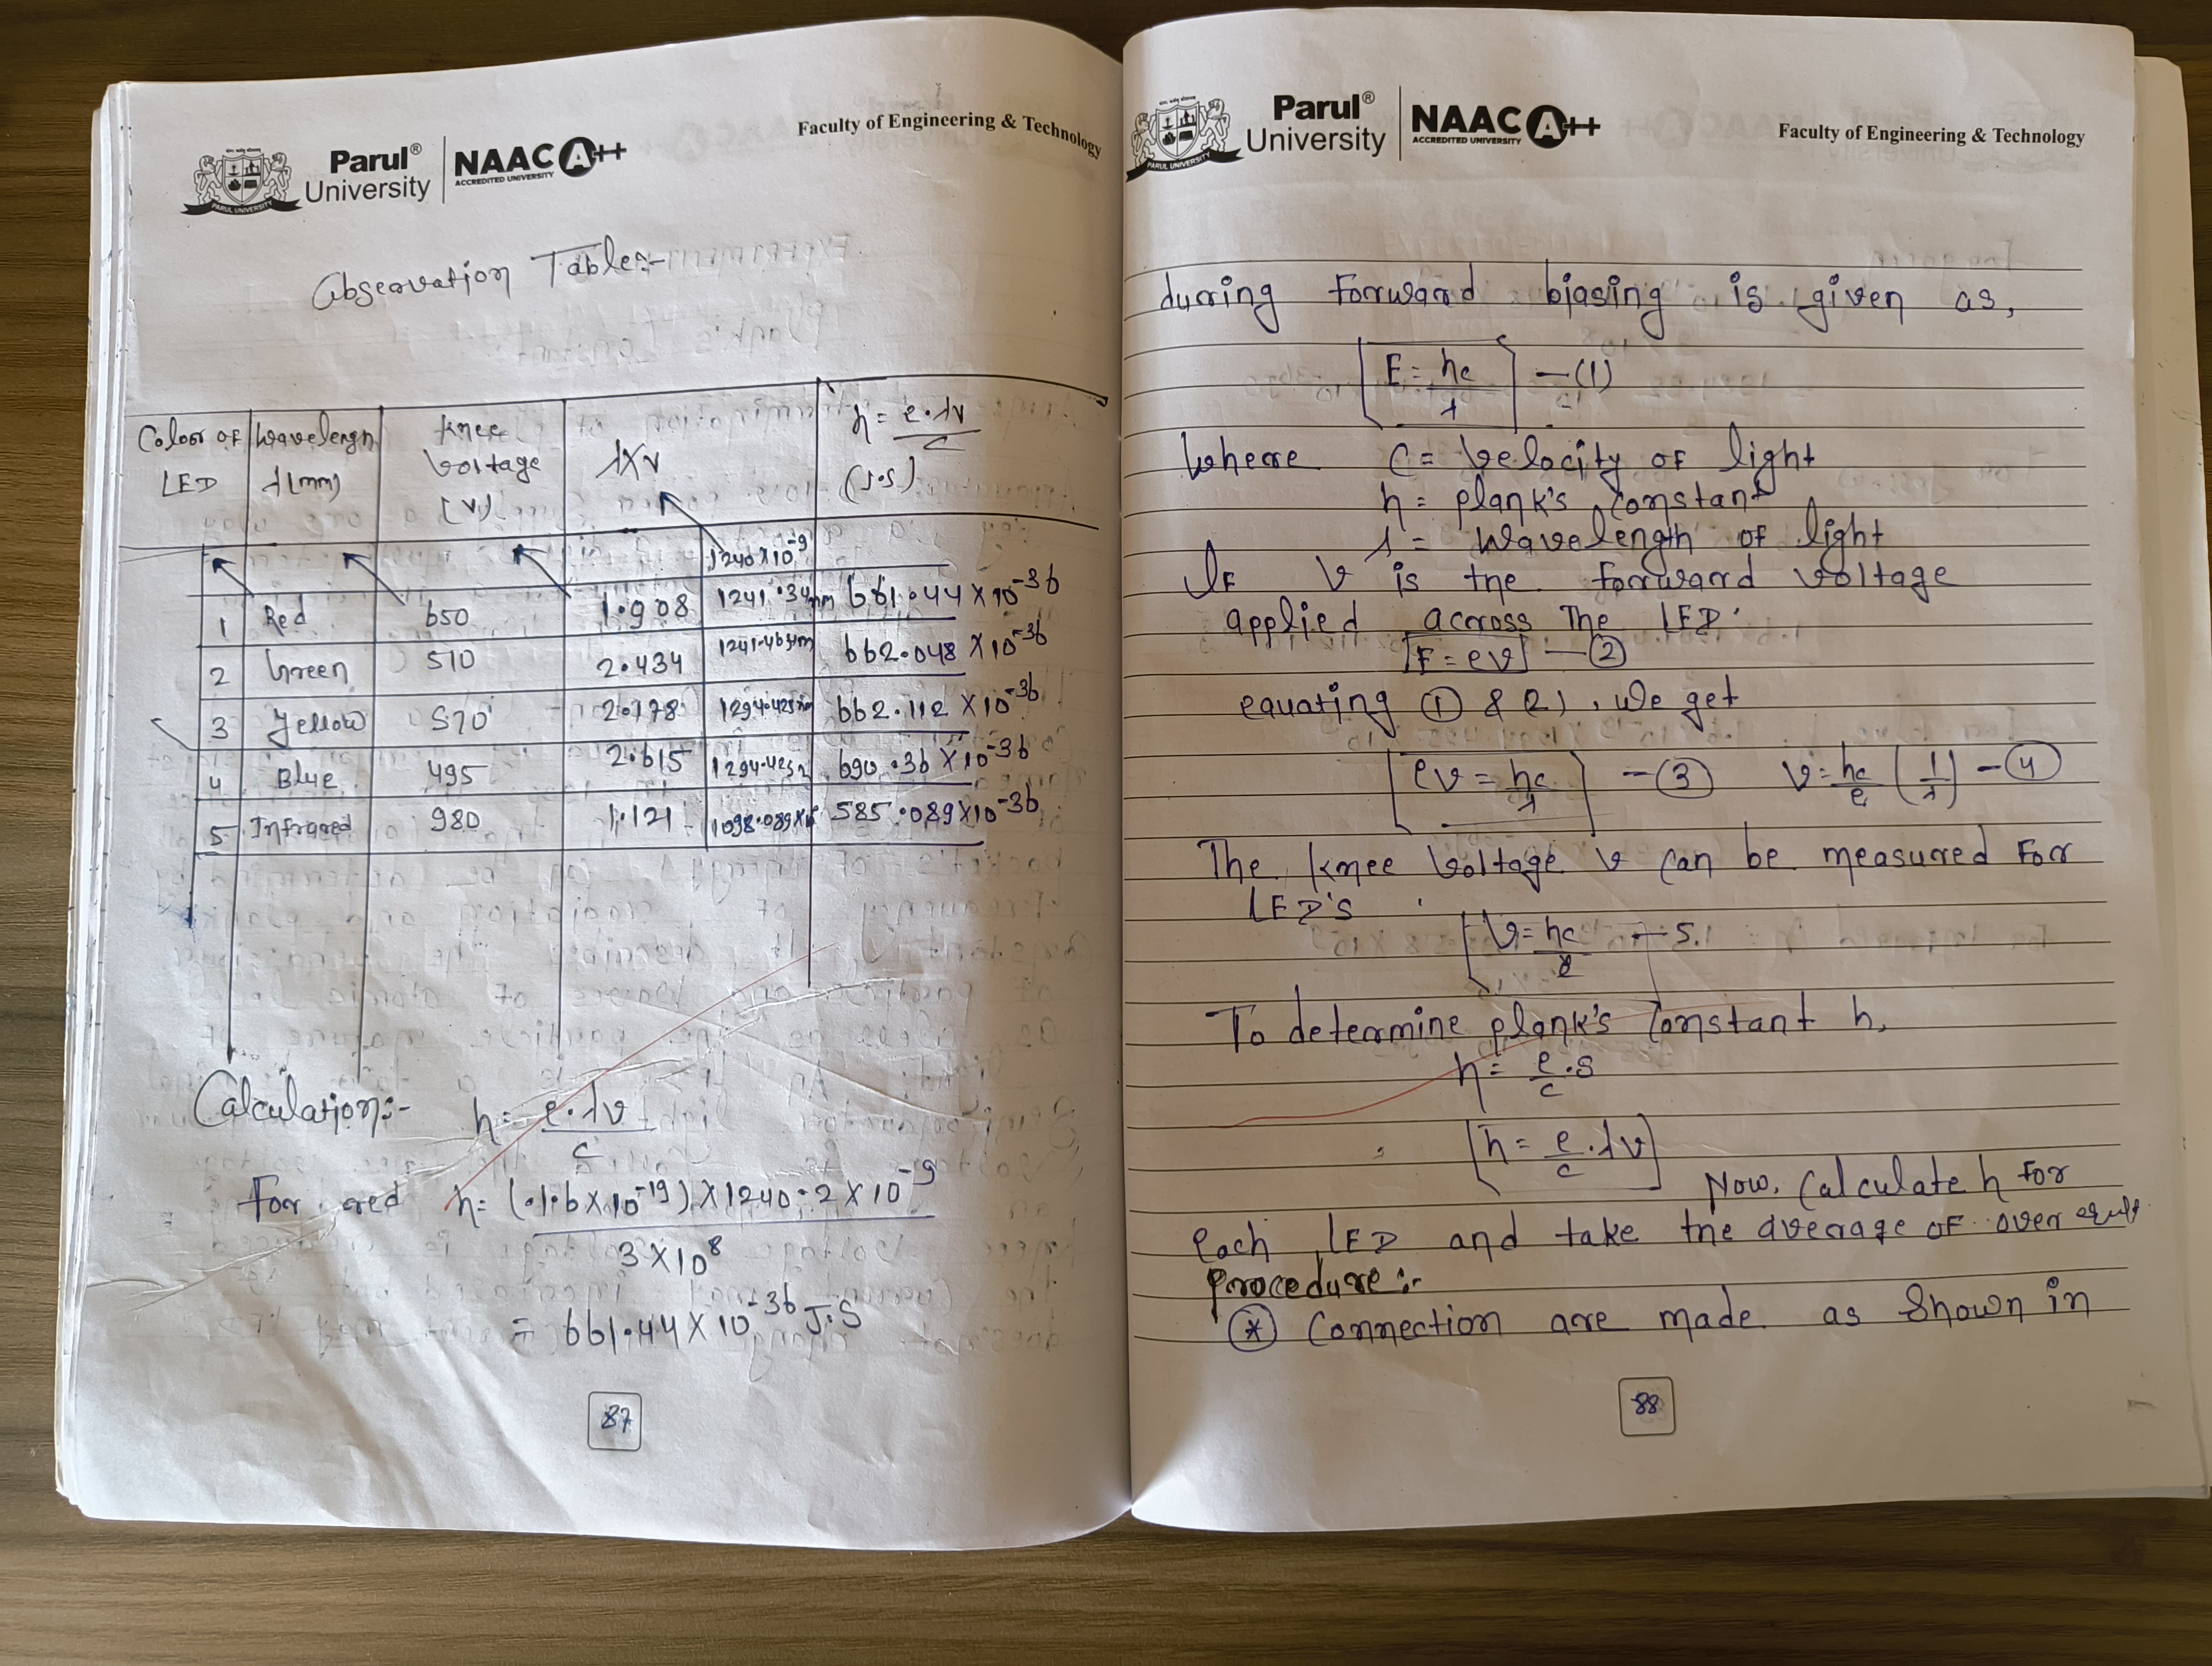 Parul®
University
NAAC A++
ACCREDITED UNIVERSITY
PARUL UNIVERSITY
Faculty of Engineering & Technology
Observation Table:-
Color of LED | Wavelength λ(nm) | Knee Voltage (V) | λXV | h = e·λv/c (J·s)
1240×10⁻⁹
1 Red 650 1.908 1241.34nm 661.44×10⁻³⁶
2 Green 510 2.434 662.048×10⁻³⁶
3 Yellow 570 2.178 1294.425nm 662.112×10⁻³⁶
4 Blue 495 2.615 1294.425n 690.36×10⁻³⁶
5 Infrared 980 1.121 585.089×10⁻³⁶
Calculation:- h = e·λv/c
For red h = (1.6×10⁻¹⁹)×1240.2×10⁻⁹ / 3×10⁸
= 661.44×10⁻³⁶ J·S
87
Parul®
University
NAAC A++
ACCREDITED UNIVERSITY
PARUL UNIVERSITY
Faculty of Engineering & Technology
during forward biasing is given as,
E = hc/λ —(1)
Where C = Velocity of light
h = plank's constant
λ = Wavelength of light
If V is the forward voltage
applied across The LED.
E = ev —②
equating ① & 2), we get
ev = hc/λ —③ V = hc/e (1/λ) —④
The knee Voltage v can be measured For
LED's
V = hc — 5.
To determine plank's Constant h,
h = e/c·s
h = e/c·λv
Now, Calculate h for
each LED and take the average of over
procedure:-
* Connection are made as Shown in
88